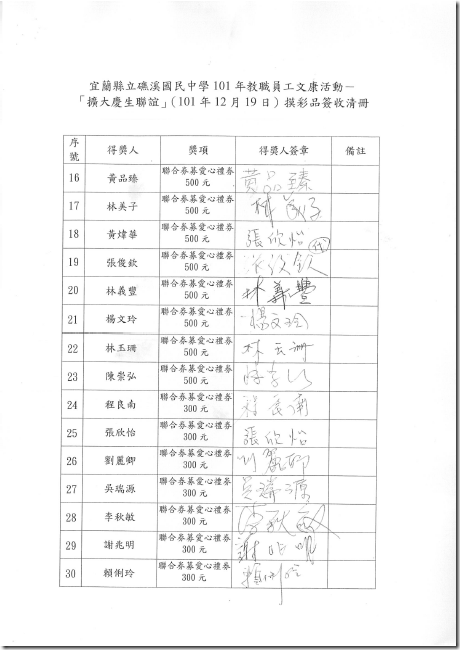 宜蘭縣立礁溪國民中學101年教職員工文康活動－
「擴大慶生聯誼」（101年12月19日）摸彩品簽收清冊
序號 得獎人 獎項 得獎人簽章 備註
16 黃品臻 聯合券募愛心禮券 500元 黃品臻
17 林美子 聯合券募愛心禮券 500元 林美子
18 黃煒華 聯合券募愛心禮券 500元 張欣怡 代
19 張俊欽 聯合券募愛心禮券 500元 張俊欽
20 林義豐 聯合券募愛心禮券 500元 林義豐
21 楊文玲 聯合券募愛心禮券 500元 楊文玲
22 林玉珊 聯合券募愛心禮券 500元 林玉珊
23 陳崇弘 聯合券募愛心禮券 500元
24 程良南 聯合券募愛心禮券 300元 程良南
25 張欣怡 聯合券募愛心禮券 300元 張欣怡
26 劉麗卿 聯合券募愛心禮券 300元 劉麗卿
27 吳瑞源 聯合券募愛心禮券 300元 吳瑞源
28 李秋敏 聯合券募愛心禮券 300元 李秋敏
29 謝兆明 聯合券募愛心禮券 300元 謝兆明
30 賴俐玲 聯合券募愛心禮券 300元 賴俐玲